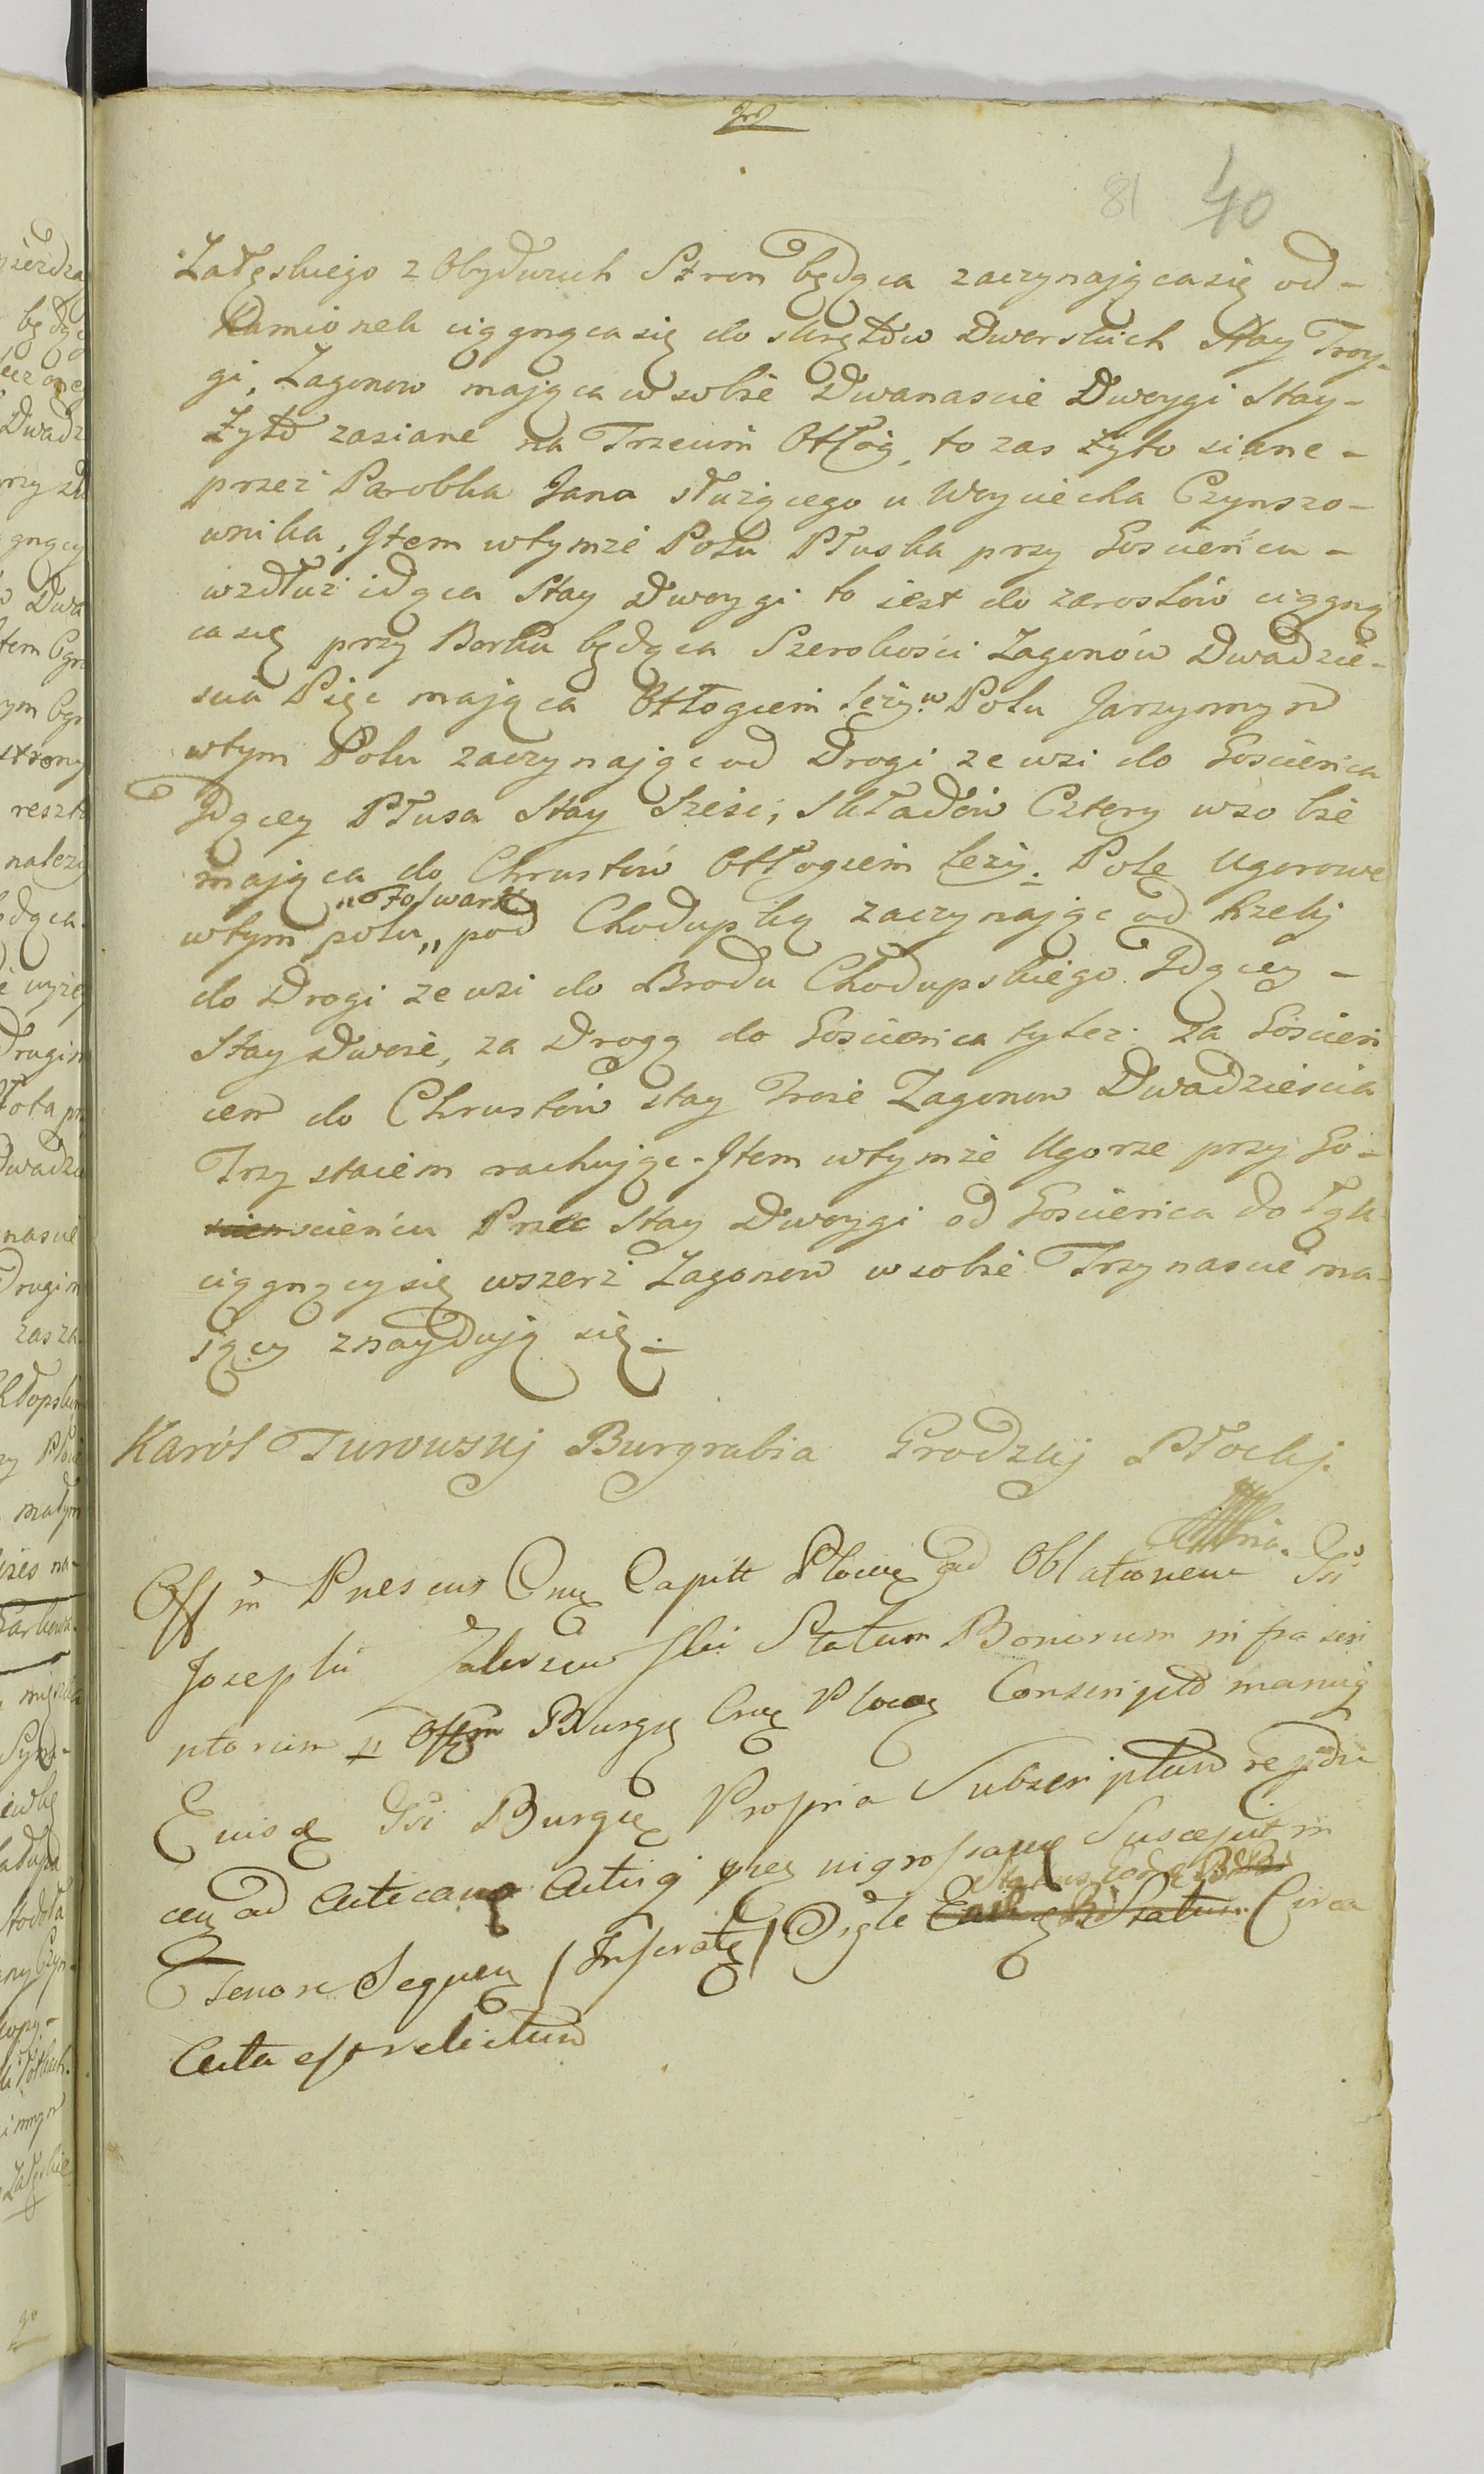 81 40
Załęskiego z Obydwuch Stron będąca zaczynająca się od -
Kamionek ciągnąca się do skrętów Dworskich Stay Troy-
gi, Zagonow mająca w sobie Dwanascie Dwoygi Stay -
Żyto zasiane na Trzecim Otłóg, to zas żyto siane -
przez Parobka Jana służącego u Woyciecha Czynszo-
wnika, Item wtymże Polu Płuska przy Gościeńcu -
wzdłuż idąca Stay Dwoygi to iest do zarostów ciągną
ca się przy Borku będąca Szerokości Zagonów Dwadzie-
scia Pięc mająca Otłogiem leży. w Polu Jarzynnym
wtym Polu zaczynając od Drogi ze wsi do Gościenca
Idącey Płusa Stay Sześć, Składów Cztery w sobie
mająca do Chrustów Otłogiem leży. Pole Ugorowe
wtym polu „Folwark„ pod Chodupką zaczynając od Rzeki
do Drogi ze wsi do Brodu Chodupskiego Idącey -
Stay Dwoie, za Drogą do Gościenca tyleż. za Goścień
cem do Chrustów stay Troie Zagonow Dwadzieścia
Trzy staiem rachując. Item wtymże Ugorze przy Go-
scieńcu Stay Dwoygi od Gościenca do Łąk
ciągnący się wszerz Zagonow w sobie Trzynascie ma-
iący znayduią się.
Karól Turowskj Burgrabia Grodzkij Płockj.
Off m Pnes cus Cap̃itt ad Oblationem Gsi
Josephi Statum Bonorum infrascri
ptorum Burg Conscriptũ manuq
Eiusq Gsi Burg Propria Subscriptum
ceu ad Acticang Actisq Suscepit in
Tenore Sequen / / Circa
Acta e relictum